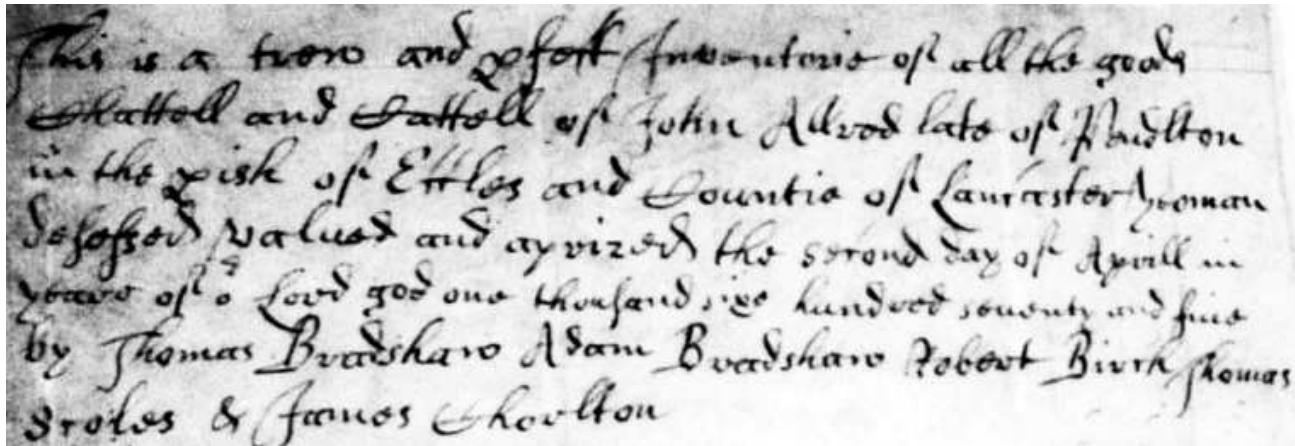 This is a trew and pfect Inventorie of all the goods
Chattell and Cattell of John Allred late of Pendlton
in the pish of Eccles and Countie of Lancaster yeoman
desessed valued and aprized the second day of Aprill in
yeare of oʳ Lord god one thousand sixe hundred seventy and five
by Thomas Bradshaw Adam Bradshaw Robert Birch Thomas
Scoles & James Chorlton